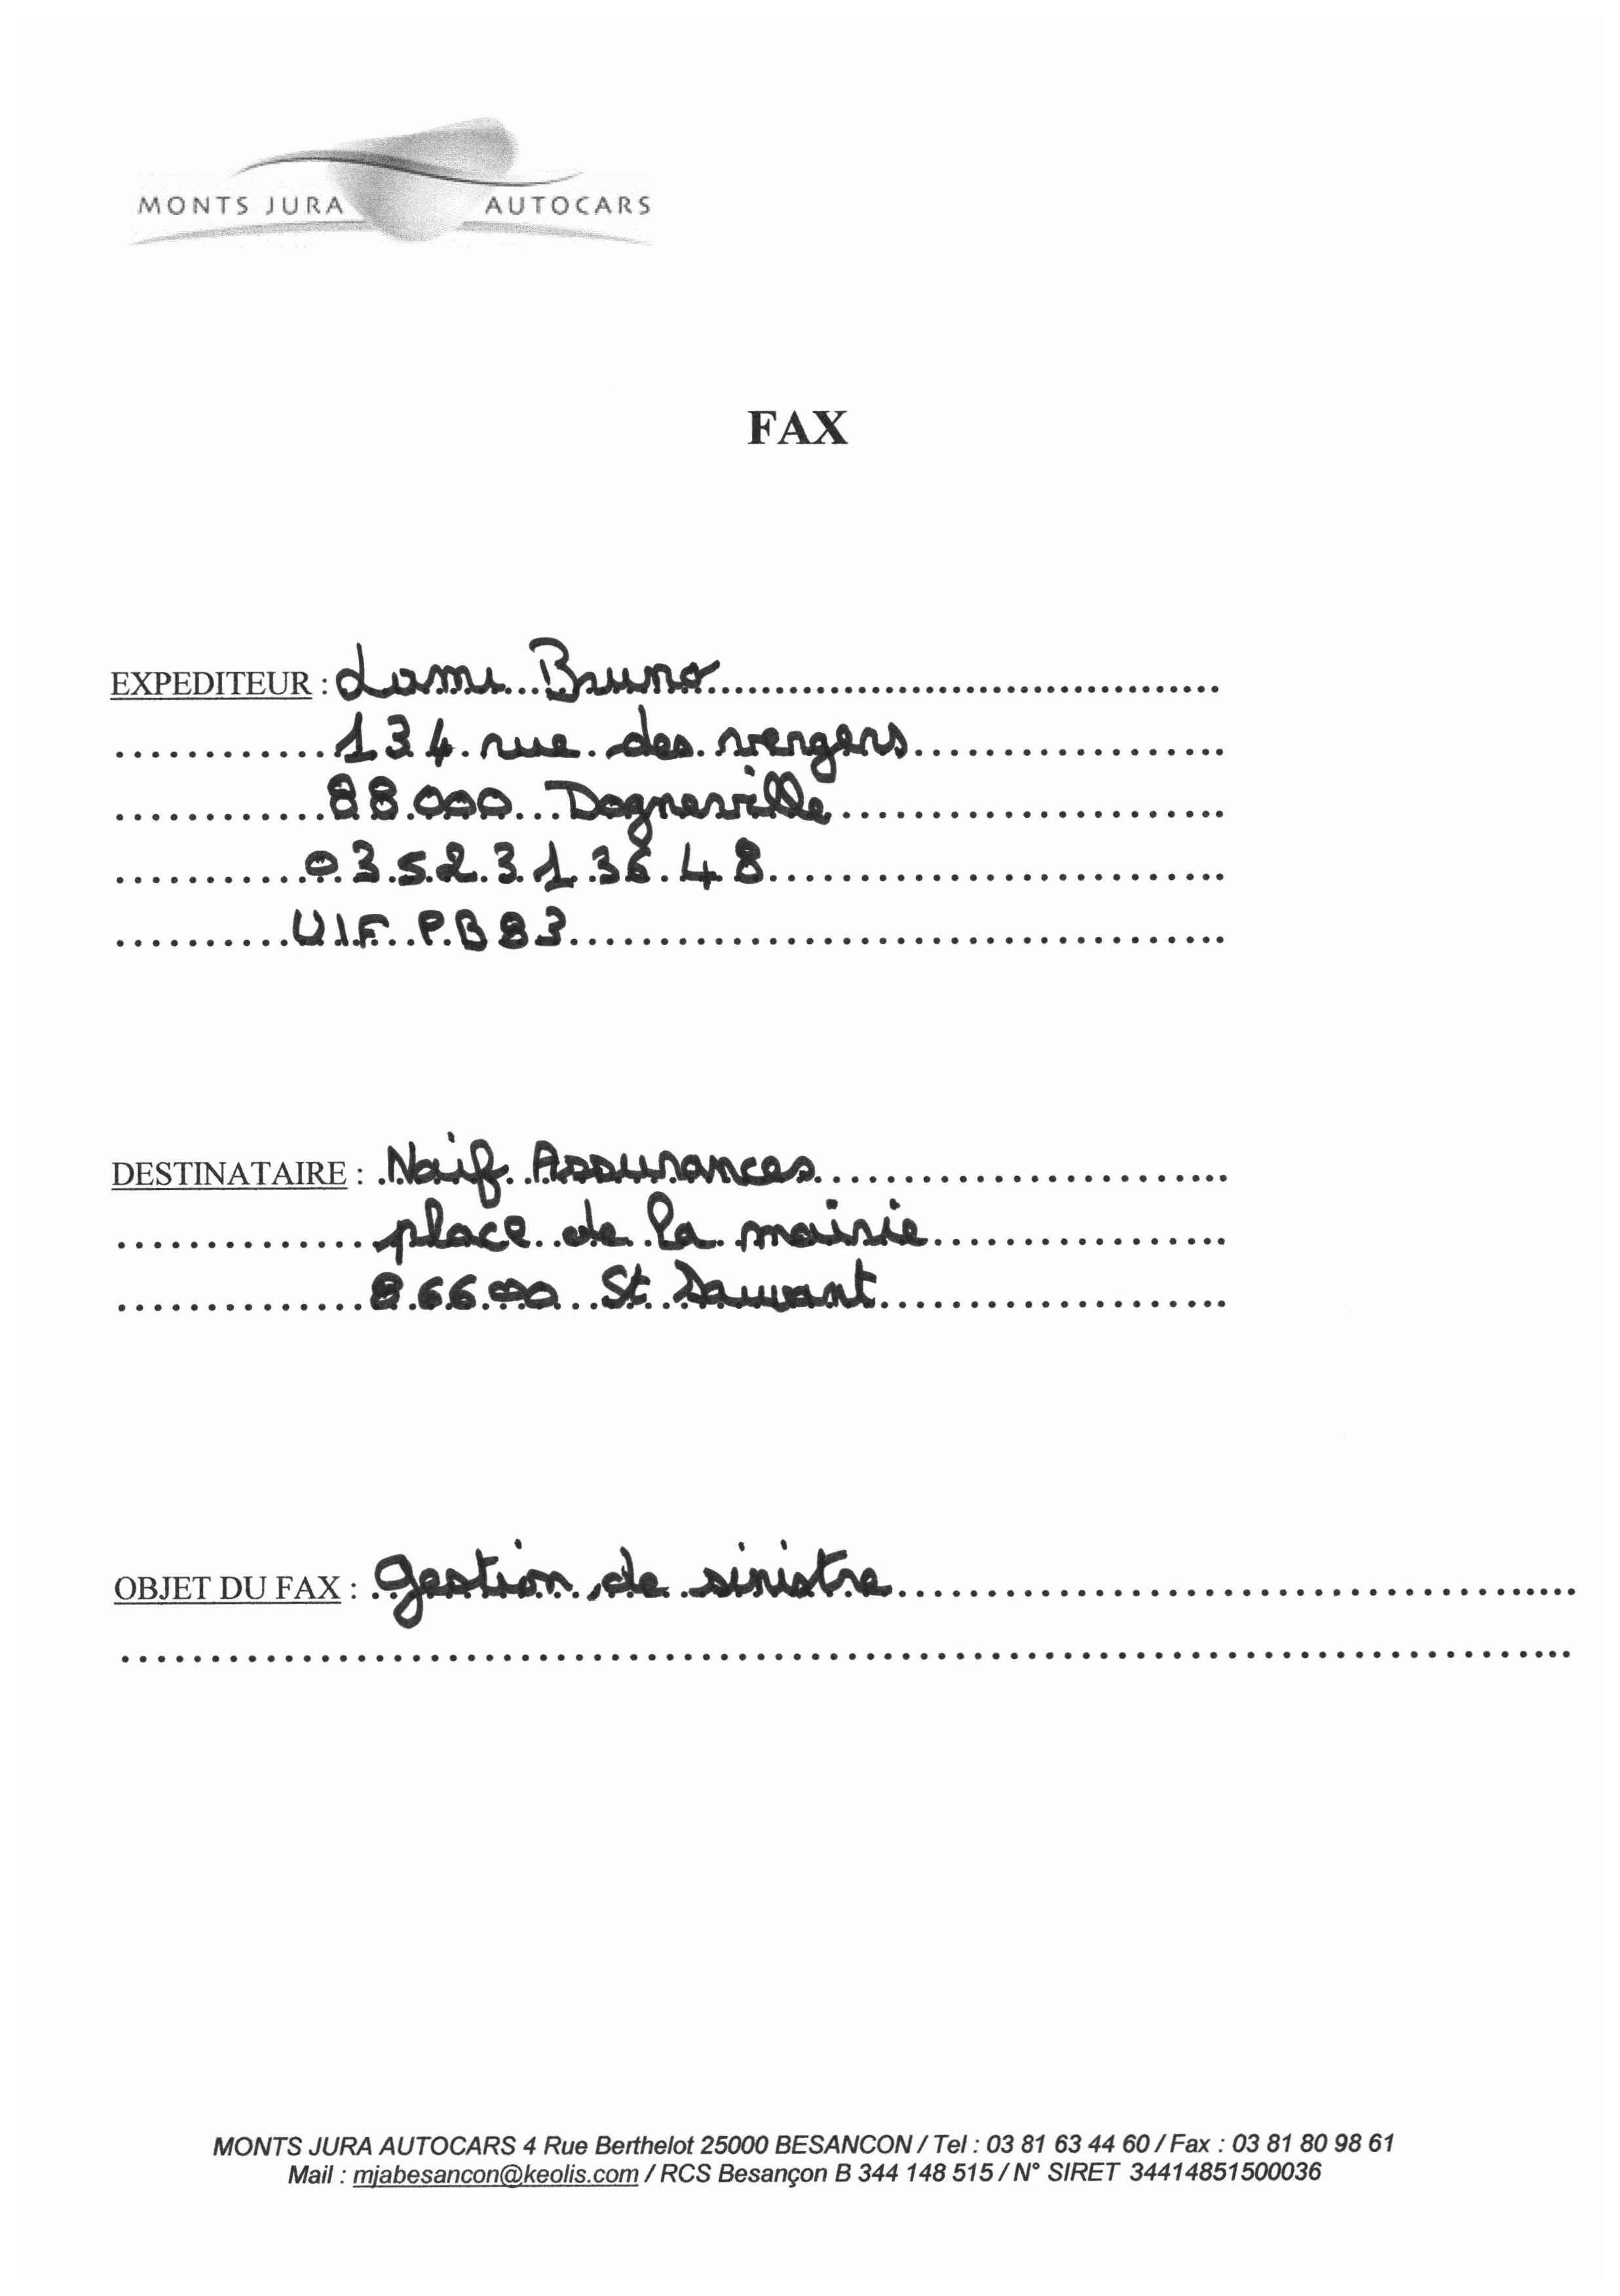 MONTS JURA AUTOCARS
FAX
EXPEDITEUR : Lami Bruno
134 rue des vergers
88000 Dogneville
03.52.31.36.48
UIFPB83
DESTINATAIRE : Naif Assurances
place de la mairie
86600 St Sauvant
OBJET DU FAX : gestion de sinistre
MONTS JURA AUTOCARS 4 Rue Berthelot 25000 BESANCON / Tel : 03 81 63 44 60 / Fax : 03 81 80 98 61
Mail : mjabesancon@keolis.com / RCS Besançon B 344 148 515 / N° SIRET 34414851500036